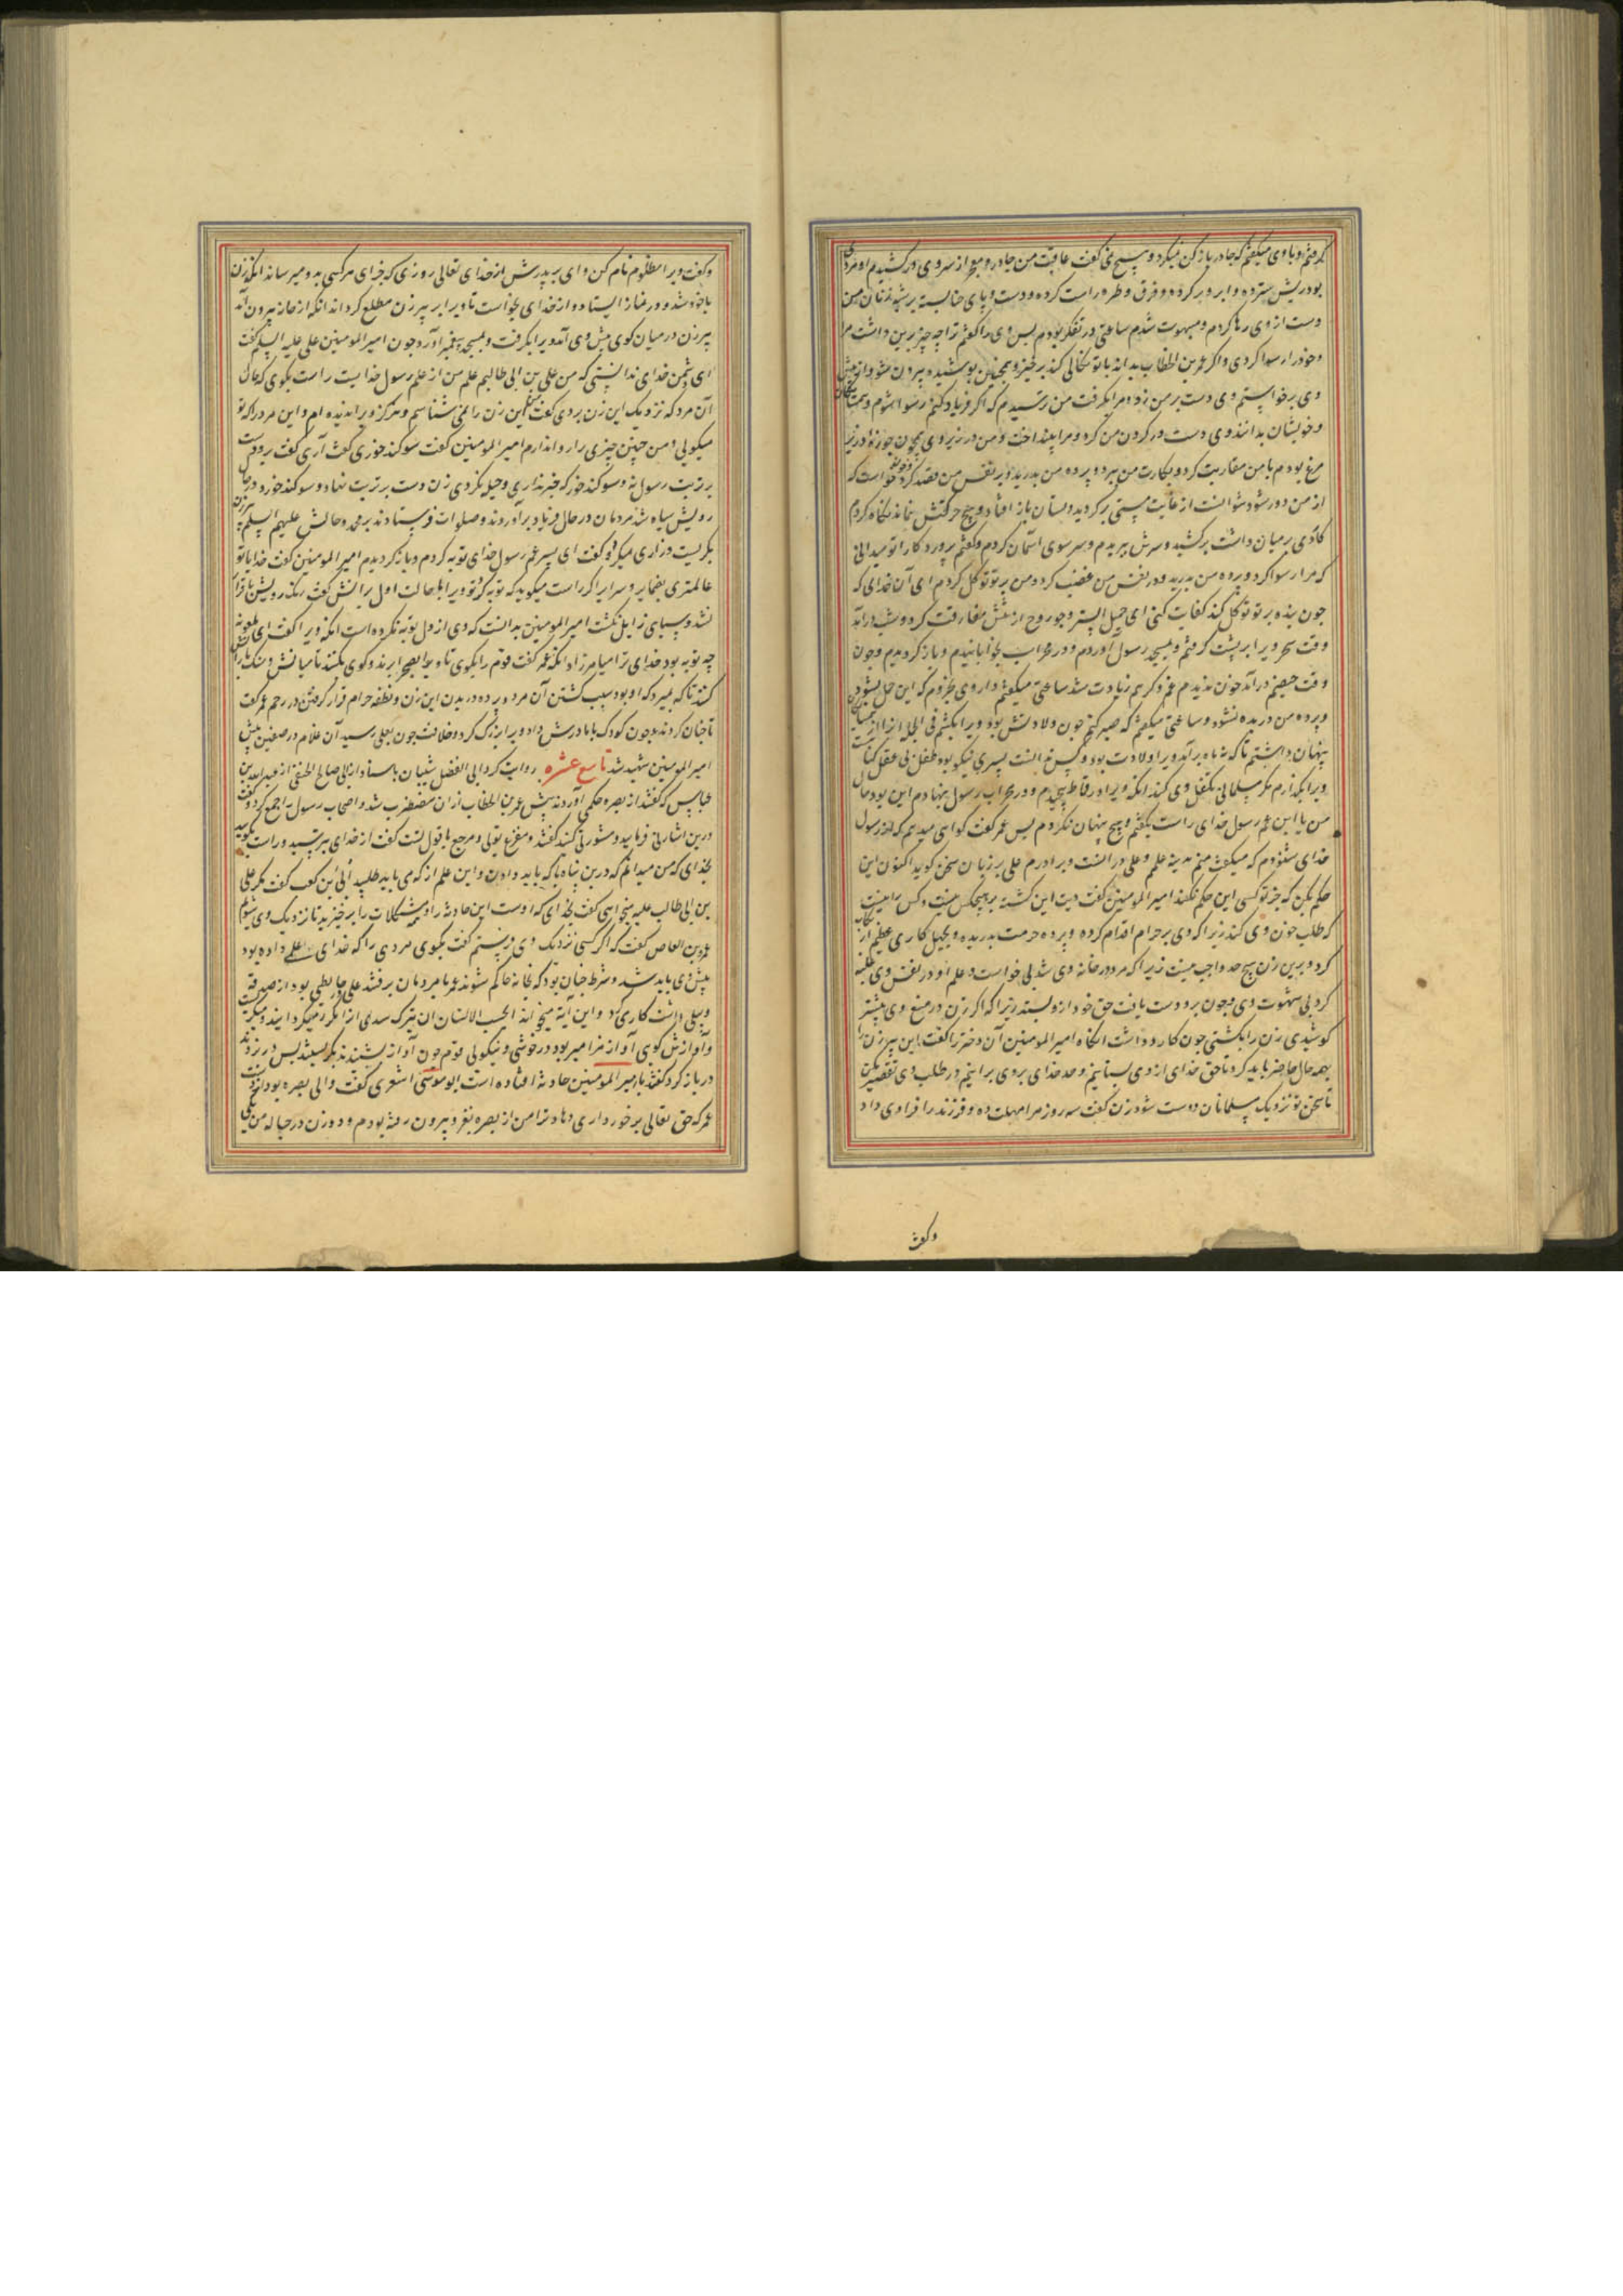 گرفتم و با وی میگفتم که چادر باز کن نمیکرد و هیچ نمی گفت عاقبت من چادر و معجر از سر وی درکشیدم او مردی
بود ریش سترده و ابرو بر کرده و فرق و طره راست کرده و دست و پای حنا بسته بر شبه زنان من
دست از وی رها کردم و مبهوت شدم ساعتی در تفکر بودم پس وی را گفتم ترا چه چیز برین داشت مرا
و خود را رسوا کردی و اگر عمر بن الخطاب بداند با تو نکالی کند برخیز و همچنان پوشیده بیرون شو و از پیش
وی برخواستم وی دست بر من زد و مرا بگرفت من ترسیدم که اگر فریاد کنم رسوا شوم و همسایگان
و خویشان بدانند وی دست در گردن من کرد و مرا بینداخت و من در زیر وی همچون جوزه در زیر
مرغ بودم با من مقاربت کرد و بکارت من ببرد و پرده من بدرید و بر نفس من قصد کرد و چون خواست که
از من دور شود نتوانست از غایت مستی برگردید و بستان باز افتاد و هیچ حرکتش نماند نگاه کردم
کاردی بر میان داشت برکشید و سرش ببریدم و سر سوی آسمان کردم و گفتم پروردگارا تو میدانی
که مرا رسوا کرد و پرده من بدرید و بر نفس من غضب کرد و من بر تو توکل کردم ای آن خدای که
چون بنده بر تو توکل کند کفایت کنی ای جمیل الستر و چون روح از تنش مفارقت کرد و شب درآمد
وقت سحر ویرا بر پشت گرفتم و بمسجد رسول آوردم و در محراب بخوابانیدم و باز گردیدم و چون
وقت حیضم درآمد خون ندیدم غم و کربم زیادت شد ساعتی میگفتم داروی بخورم که این حمل بشود
و پرده من دریده نشود و ساعتی میگفتم که صبر کنم چون ولادتش بود ویرا بکشم فی الجمله از همسایگان
پنهان داشتم تا که نه ماه برآمد ویرا ولادت بود و کس ندانست پسری نیکو بود طفل بی عقل گفتم
ویرا بگذارم مگر مسلمانی تکفل وی کند آنگه ویرا در قماط پیچیدم و در محراب رسول بنهادم این بود حال
من یا ابن عم رسول خدای راست بگفتم و هیچ پنهان نکردم پس عمر گفت گواهی میدهم که از رسول
خدای شنودم که میگفت منم مدینه علم و علی در آنست و برادرم علی بر زبان حق سخن گوید اکنون این
حکم بکن که جز تو کسی این حکم نکند امیر المومنین گفت دیت این کشته بر هیچکس نیست و کس را نیست
که طلب خون وی کند زیرا که وی بر حرام اقدام کرده و پرده حرمت بدریده و بجهل کاری عظیم ارتکاب
کرد و برین زن هیچ حد واجب نیست زیرا که مرد در خانه وی شد بی خواست و علم او و در نفس وی غلبه
کرد بی شهوت وی و چون برو دست یافت حق خود از و بستد زیرا که اگر زن در منع وی بیشتر
کوشیدی زن را بکشتی چون کارد داشت آنگاه امیر المومنین آن دختر را گفت این پیر زن را
بهمه حال حاضر باید کرد تا حق خدای از وی بستانیم و حد خدای بروی برانیم در طلب وی تقصیر مکن
تا سخن تو نزدیک مسلمانان درست شود زن گفت سه روز مرا مهلت ده و فرزند را فرا وی داد
وگفت
وگفت ویرا مظلوم نام کن وای بر پدرش از خدای تعالی روزی که جزای هر کسی بدو میرساند آنگه زن
با خانه شد و در نماز ایستاد و از خدای بخواست تا ویرا بر پیر زن مطلع گرداند آنگه از خانه بیرون آمد
پیر زن در میان کوی پیش وی آمد ویرا بگرفت و بمسجد پیغمبر آورد چون امیر المومنین علی علیه السلم گفت
ای دشمن خدای ندانستی که من علی بن ابی طالبم علم من از علم رسول خداست راست بگوی که حال
آن مرد که نزدیک این زن بردی گفت من این زن را نمی شناسم و هرگز ویرا ندیده ام و این مرد را که تو
میگویی و من چنین چیزی را روا ندارم امیر المومنین گفت سوگند خوری گفت آری گفت برو دست
بر تربت رسول نه و سوگند خور که خبر نداری و حیل نکردی زن دست بر تربت نهاد و سوگند خورد در حال
رویش سیاه شد مردمان در حال فریاد برآوردند و صلوات فرستادند بر محمد و آلش علیهم السلم پیرزن
بگریست و زاری میکرد و گفت ای پسر عم رسول خدای توبه کردم و باز گردیدم امیر المومنین گفت خدایا تو
عالمتری بضمایر و سرایر اگر راست میگوید که توبه کرد تو ویرا با حالت اول رسانش گفت رنگ رویش با قرار
نشد و سیاهی زایل نگشت امیر المومنین بدانست که وی از دل توبه نکرده است آنگه ویرا گفت ای ملعونه
چه توبه بود خدای ترا میامرزاد آنگه عمر گفت قوم را بگوی تا ویرا بصحرا برند و گوی بکنند تا میانش و سنگ باران
کنند تا که بمیرد که او بود سبب کشتن آن مرد و پرده دریدن این زن و نطفه حرام قرار گرفتن در رحم عمر گفت
تا چنان کردند و چون کودک با مادرش داد ویرا بزرگ کرد و خلافت چون بعلی رسید آن غلام در صفین پیش
امیر المومنین شهید شد تاسع عشره روایت کرد ابی الفضل شیبان باسناد از ابی صالح الحنفی از عبد الله بن
عباس که گفتند از بصره حکمی آوردند پیش عمر بن الخطاب از آن مضطرب شد و اصحاب رسول را جمع کرد و گفت
درین اشارتی فرمایید و مشورتی کنید گفتند مفزع تویی و مرجع با قول تست گفت از خدای بترسید و راست گویید
بخدای که من میدانم که درین پناه با که باید دادن و این علم از که می باید طلبید ابی بن کعب گفت مگر علی
بن ابی طالب علیه میخواهی گفت بخدای که اوست این حادثه را و همه مشکلات را برخیزید تا نزدیک وی شویم
عمرو بن العاص گفت که اگر کسی نزدیک وی فرستم گفت بگوی مردی را که خدای علم داده بود
پیش وی باید شد و شرط چنان بود که بخانه حاکم شوند عمر با مردمان برفتند علی در حایطی بود از صدقه
و بیلی داشت کاری کرد و این آیه میخواند ایحسب الانسان ان یترک سدی آنرا مکرر میگردانید و میگریست
و آوازش گویی آواز مزامیر بود در خوشی و نیکویی قوم چون آواز بشنیدند بگریستند پس در بزدند
در باز کرد گفتند یا امیر المومنین حادثه افتاده است ابو موسی اشعری گفت والی بصره بود از دست
عمر که حق تعالی برخورداری دهاد ترا من از بصره بغزو بیرون رفته بودم و دو زن در حباله من یکی